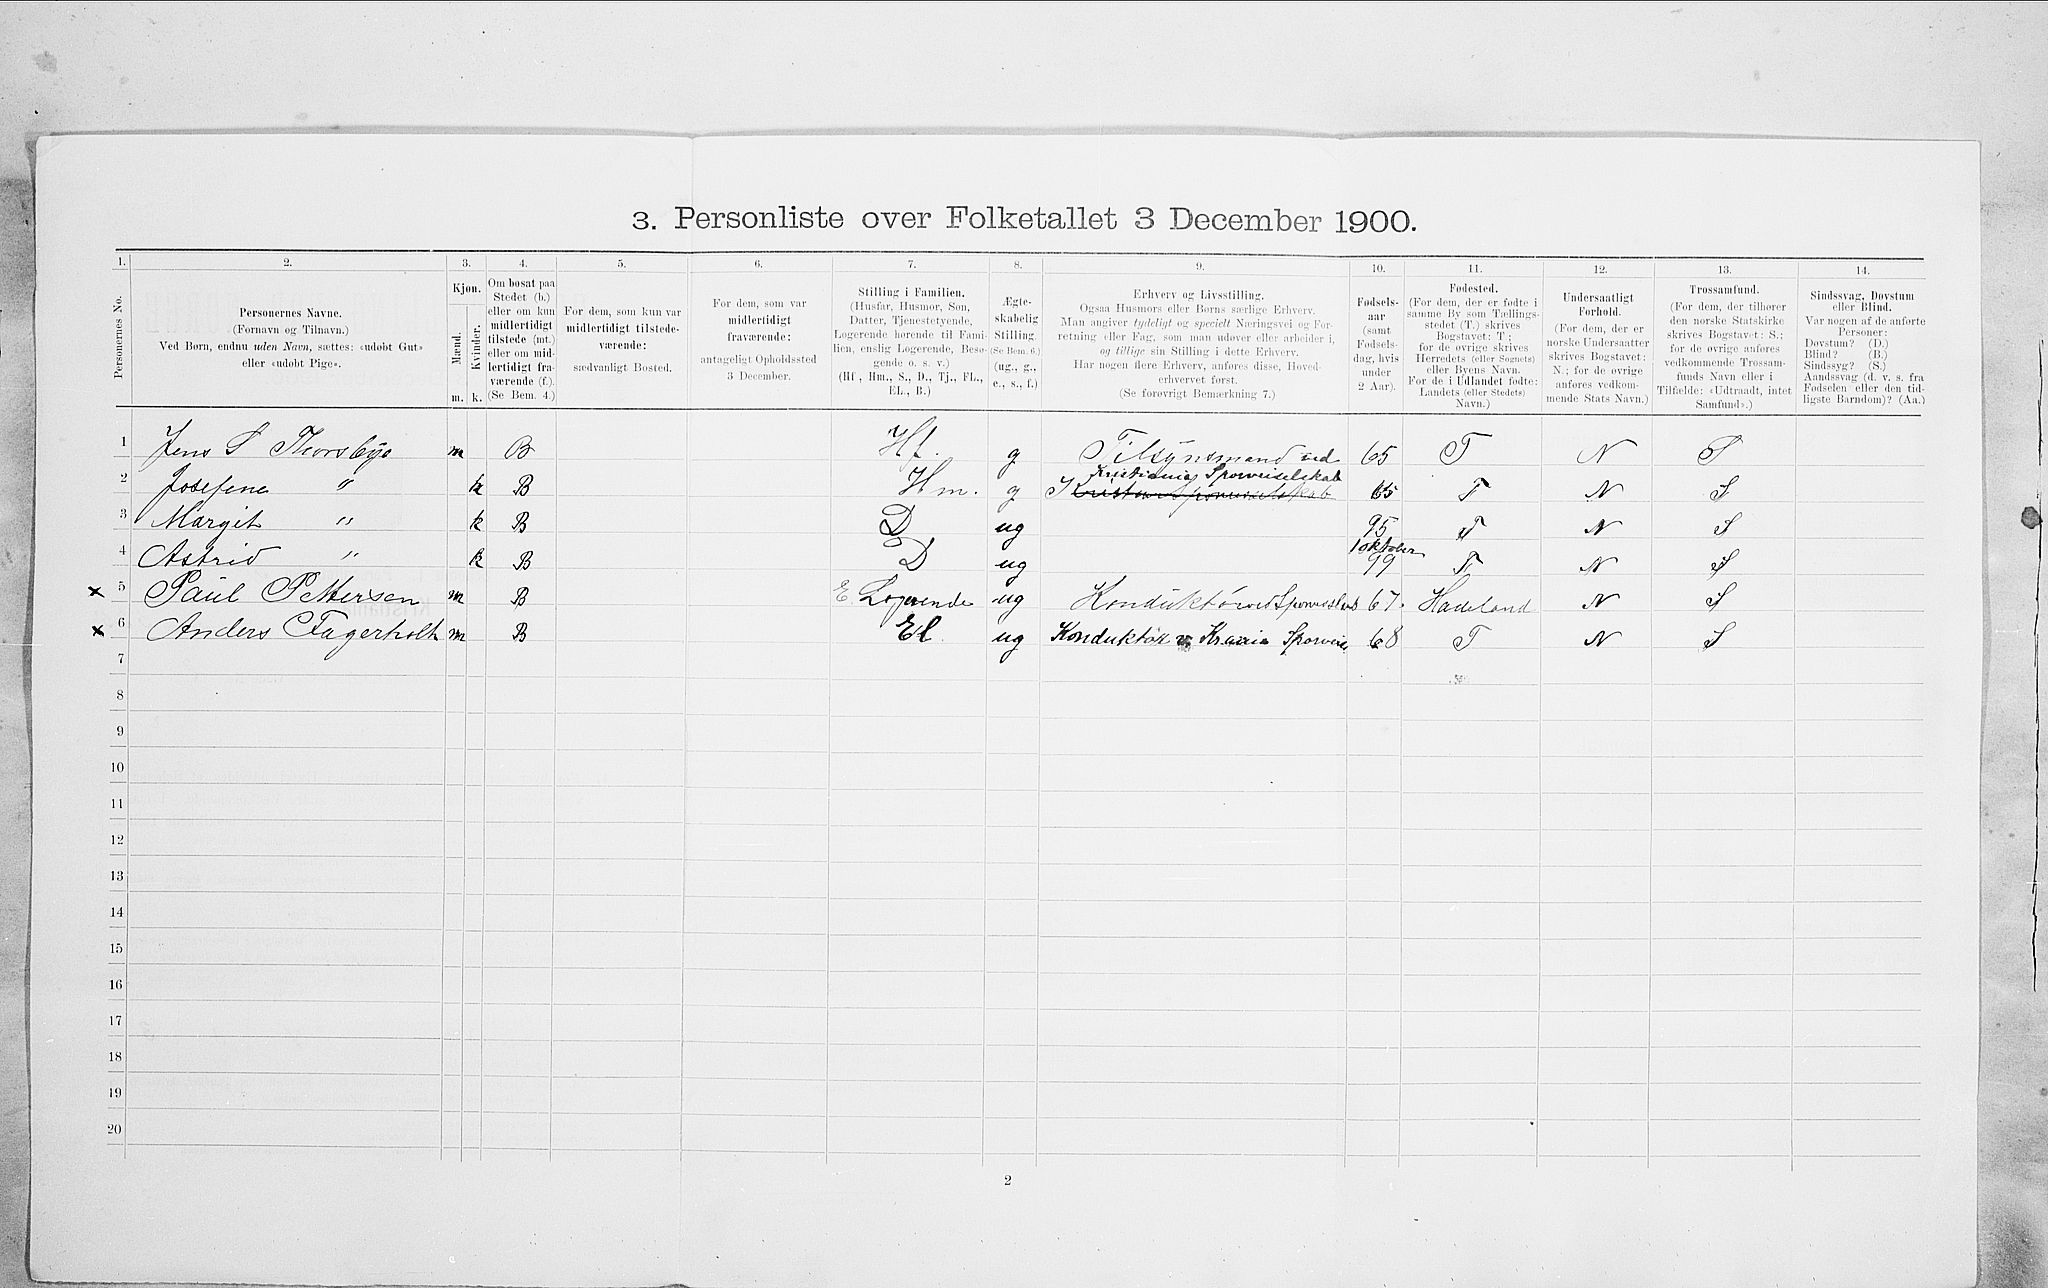 3. Personliste over Folketallet 3 December 1900.
1. 2. 3. 4. 5. 6. 7. 8. 9. 10. 11. 12. 13. 14.
Personernes No.
Personernes Navne.
(Fornavn og Tilnavn.)
Ved Børn, endnu uden Navn, sættes: «udøbt Gut»
eller «udøbt Pige».
Kjøn.
Mænd.
Kvinder.
m. k.
Om bosat paa
Stedet (b.)
eller om kun
midlertidigt
tilstede (mt.)
eller om mid-
lertidigt fra-
værende (f.).
(Se Bem. 4.)
For dem, som kun var
midlertidigt tilstede-
værende:
sædvanligt Bosted.
For dem, som var
midlertidigt
fraværende:
antageligt Opholdssted
3 December.
Stilling i Familien.
(Husfar, Husmor, Søn,
Datter, Tjenestetyende,
Logerende hørende til Fami-
lien, enslig Logerende, Besø-
gende o. s. v.)
(Hf., Hm., S., D., Tj., FL.,
EL., B.)
Ægte-
skabelig
Stilling.
(Se Bem. 6.)
(ug., g.,
e., s., f.)
Erhverv og Livsstilling.
Ogsaa Husmors eller Børns særlige Erhverv.
Man angiver tydeligt og specielt Næringsvei og For-
retning eller Fag, som man udøver eller arbeider i,
og tillige sin Stilling i dette Erhverv.
Har nogen flere Erhverv, anføres disse, Hoved-
erhvervet først.
(Se forøvrigt Bemærkning 7.)
Fødsels-
aar
(samt
Fødsels-
dag, hvis
under
2 Aar).
Fødested.
(For dem, der er fødte i
samme By som Tællings-
stedet (T.) skrives
Bogstavet: T.;
for de øvrige skrives
Herredets (eller Sognets)
eller Byens Navn.
For de i Udlandet fødte:
Landets (eller Stedets)
Navn.)
Undersaatligt
Forhold.
(For dem, der er
norske Undersaatter
skrives Bogstavet:
N.; for de øvrige
anføres vedkom-
mende Stats Navn.)
Trossamfund.
(For dem, der tilhører
den norske Statskirke
skrives Bogstavet: S.;
for de øvrige anføres
vedkommende Trossam-
funds Navn eller i
Tilfælde: «Udtraadt, intet
Samfund».)
Sindssvag, Døvstum
eller Blind.
Var nogen af de anførte
Personer:
Døvstum? (D.)
Blind? (B.)
Sindssyg? (S.)
Aandssvag (d. v. s. fra
Fødselen eller den tid-
ligste Barndom)? (Aa.)
1 Jens S Thorsbye m B Hf. g Tilsynsmand ved 65 T N S
Kristiania Sporveiselskab
2 Josefine " k B Hm. g 65 T N S
3 Margit " k B D ug 95 T N S
1 oktober
4 Astrid " k B D ug 99 T N S
x 5 Paul Pettersen m B E. Logerende ug Konduktør ved 67. Hadeland N S
x 6 Anders Fagerholt m B El. ug Konduktør v. Krania Sporveis 68 T N S
7
8
9
10
11
12
13
14
15
16
17
18
19
20
2